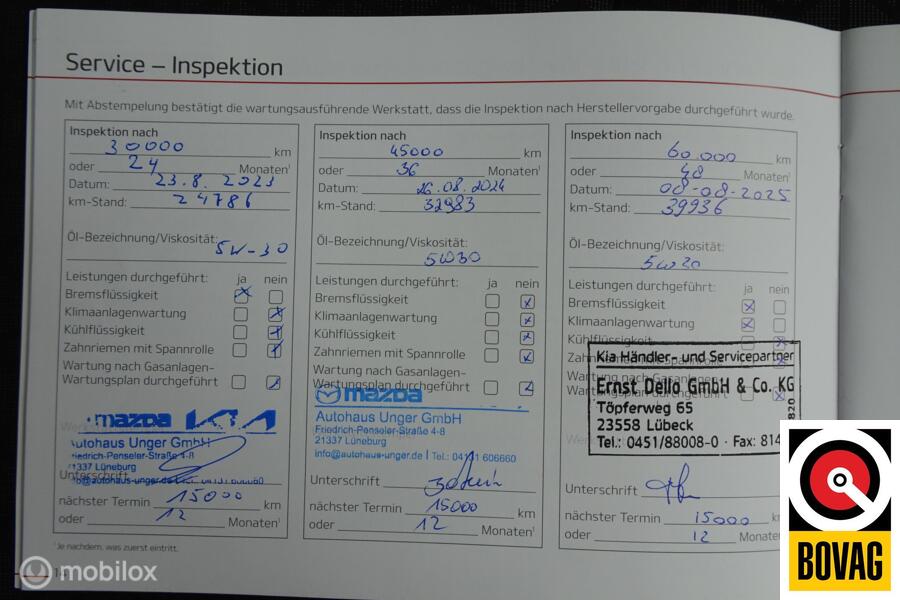 Service – Inspektion
Mit Abstempelung bestätigt die wartungsausführende Werkstatt, dass die Inspektion nach Herstellervorgabe durchgeführt wurde.
Inspektion nach
30000 km
oder 24 Monaten¹
Datum: 23.8. 2023
km-Stand: 24786
Öl-Bezeichnung/Viskosität:
5W-30
Leistungen durchgeführt: ja nein
Bremsflüssigkeit
Klimaanlagenwartung
Kühlflüssigkeit
Zahnriemen mit Spannrolle
Wartung nach Gasanlagen-
Wartungsplan durchgeführt
mazda KIA
Autohaus Unger GmbH
Friedrich-Penseler-Straße 4-8
21337 Lüneburg
Unterschrift
nächster Termin 15000 km
oder 12 Monaten¹
¹Je nachdem, was zuerst eintritt.
Inspektion nach
45000 km
oder 36 Monaten¹
Datum: 26.08.2024
km-Stand: 32983
Öl-Bezeichnung/Viskosität:
5W30
Leistungen durchgeführt: ja nein
Bremsflüssigkeit
Klimaanlagenwartung
Kühlflüssigkeit
Zahnriemen mit Spannrolle
Wartung nach Gasanlagen-
Wartungsplan durchgeführt
mazda
Autohaus Unger GmbH
Friedrich-Penseler-Straße 4-8
21337 Lüneburg
info@autohaus-unger.de | Tel.: 04131 606660
Unterschrift
nächster Termin 15000 km
oder 12 Monaten¹
Inspektion nach
60.000 km
oder 48 Monaten¹
Datum: 08-08-2025
km-Stand: 39936
Öl-Bezeichnung/Viskosität:
5W30
Leistungen durchgeführt: ja nein
Bremsflüssigkeit
Klimaanlagenwartung
Kühlflüssigkeit
Kia Händler- und Servicepartner
Ernst Dello GmbH & Co. KG
Töpferweg 65
23558 Lübeck
Tel.: 0451/88008-0 · Fax: 814
820
Unterschrift
nächster Termin 15000
oder 12 Monaten
mobilox
BOVAG